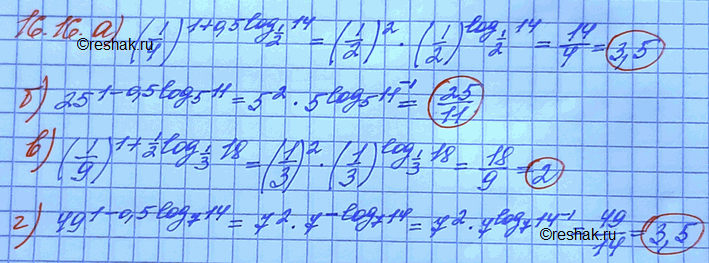 16.16. а) (1/4)^(1+0,5log_(1/2)14) = (1/2)^2 · (1/2)^(log_(1/2)14) = 14/4 = 3,5
©reshak.ru
б) 25^(1-0,5log_5 11) = 5^2 · 5^(log_5 11^(-1)) = 25/11
в) (1/9)^(1+1/2 log_(1/3)18) = (1/3)^2 · (1/3)^(log_(1/3)18) = 18/9 = 2
г) 49^(1-0,5log_7 14) = 7^2 · 7^(-log_7 14) = 7^2 · 7^(log_7 14^(-1)) = 49/14 = 3,5
©reshak.ru